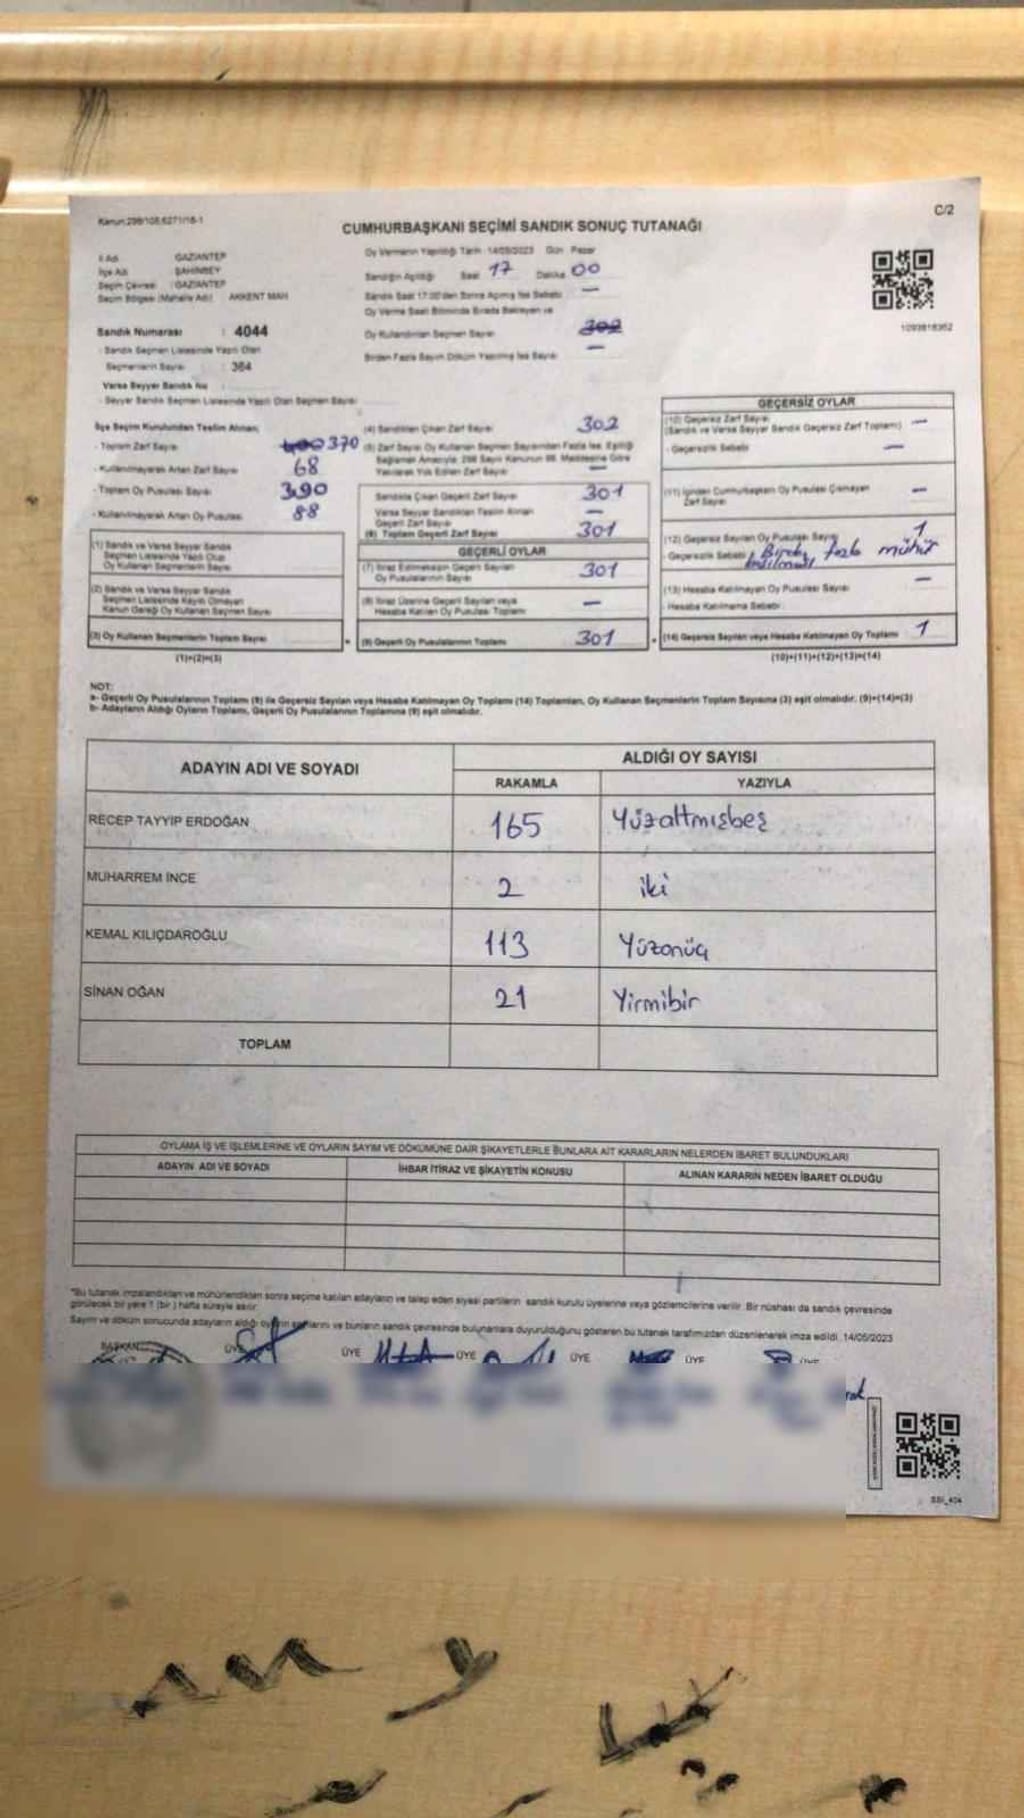 Kanun:298/105,6271/18-1
C/2
CUMHURBAŞKANI SEÇİMİ SANDIK SONUÇ TUTANAĞI
İl Adı GAZİANTEP
İlçe Adı ŞAHİNBEY
Seçim Çevresi : GAZİANTEP
Seçim Bölgesi (Mahalle Adı) AKKENT MAH
Oy Vermenin Yapıldığı Tarih : 14/05/2023 Gün Pazar
Sandığın Açıldığı Saat 17 Dakika 00
Sandık Saat 17:00'den Sonra Açılmış İse Sebebi —
Oy Verme Saati Bitiminde Sırada Bekleyen ve
Oy Kullandırılan Seçmen Sayısı 302
Birden Fazla Sayım Döküm Yapılmış İse Sayısı —
1093818362
Sandık Numarası : 4044
- Sandık Seçmen Listesinde Yazılı Olan
Seçmenlerin Sayısı : 364
Varsa Seyyar Sandık No
- Seyyar Sandık Seçmen Listesinde Yazılı Olan Seçmen Sayısı
İlçe Seçim Kurulundan Teslim Alınan;
- Toplam Zarf Sayısı 400 370
- Kullanılmayarak Artan Zarf Sayısı 68
- Toplam Oy Pusulası Sayısı 390
- Kullanılmayarak Artan Oy Pusulası 88
(1) Sandık ve Varsa Seyyar Sandık
Seçmen Listesinde Yazılı Olup
Oy Kullanan Seçmenlerin Sayısı
(2) Sandık ve Varsa Seyyar Sandık
Seçmen Listesinde Kaydı Olmayan
Kanun Gereği Oy Kullanan Seçmen Sayısı
(3) Oy Kullanan Seçmenlerin Toplam Sayısı
(1)+(2)=(3)
(4) Sandıktan Çıkan Zarf Sayısı 302
(5) Zarf Sayısı Oy Kullanan Seçmen Sayısından Fazla İse, Eşitliği
Sağlamak Amacıyla, 298 Sayılı Kanunun 98. Maddesine Göre
Yakılarak Yok Edilen Zarf Sayısı —
Sandıkta Çıkan Geçerli Zarf Sayısı 301
Varsa Seyyar Sandıktan Teslim Alınan
Geçerli Zarf Sayısı —
(6) Toplam Geçerli Zarf Sayısı 301
GEÇERLİ OYLAR
(7) İtiraz Edilmeksizin Geçerli Sayılan
Oy Pusulalarının Sayısı 301
(8) İtiraz Üzerine Geçerli Sayılan veya
Hesaba Katılan Oy Pusulası Toplamı —
(9) Geçerli Oy Pusulalarının Toplamı 301
GEÇERSİZ OYLAR
(10) Geçersiz Zarf Sayısı
(Sandık ve Varsa Seyyar Sandık Geçersiz Zarf Toplamı) —
- Geçersizlik Sebebi —
(11) İçinden Cumhurbaşkanı Oy Pusulası Çıkmayan
Zarf Sayısı —
(12) Geçersiz Sayılan Oy Pusulası Sayısı 1
- Geçersizlik Sebebi Birden fazla mühür
(13) Hesaba Katılmayan Oy Pusulası Sayısı —
- Hesaba Katılmama Sebebi
(14) Geçersiz Sayılan veya Hesaba Katılmayan Oy Toplamı 1
(10)+(11)+(12)+(13)=(14)
NOT:
a- Geçerli Oy Pusulalarının Toplamı (9) ile Geçersiz Sayılan veya Hesaba Katılmayan Oy Toplamı (14) Toplamları, Oy Kullanan Seçmenlerin Toplam Sayısına (3) eşit olmalıdır. (9)+(14)=(3)
b- Adayların Aldığı Oyların Toplamı, Geçerli Oy Pusulalarının Toplamına (9) eşit olmalıdır.
ADAYIN ADI VE SOYADI
ALDIĞI OY SAYISI
RAKAMLA YAZIYLA
RECEP TAYYİP ERDOĞAN 165 Yüzaltmışbeş
MUHARREM İNCE 2 iki
KEMAL KILIÇDAROĞLU 113 Yüzonüç
SİNAN OĞAN 21 Yirmibir
TOPLAM
OYLAMA İŞ VE İŞLEMLERİNE VE OYLARIN SAYIM VE DÖKÜMÜNE DAİR ŞİKAYETLERLE BUNLARA AİT KARARLARIN NELERDEN İBARET BULUNDUKLARI
ADAYIN ADI VE SOYADI İHBAR İTİRAZ VE ŞİKAYETİN KONUSU ALINAN KARARIN NEDEN İBARET OLDUĞU
*Bu tutanak imzalandıktan ve mühürlendikten sonra seçime katılan adayların ve talep eden siyasi partilerin sandık kurulu üyelerine veya gözlemcilerine verilir. Bir nüshası da sandık çevresinde
görülecek bir yere 1 (bir) hafta süreyle asılır.
Sayım ve döküm sonucunda adayların aldığı oyların sayılarını ve bunların sandık çevresinde bulunanlara duyurulduğunu gösteren bu tutanak tarafımızdan düzenlenerek imza edildi. 14/05/2023
BAŞKAN ÜYE ÜYE ÜYE ÜYE ÜYE ÜYE